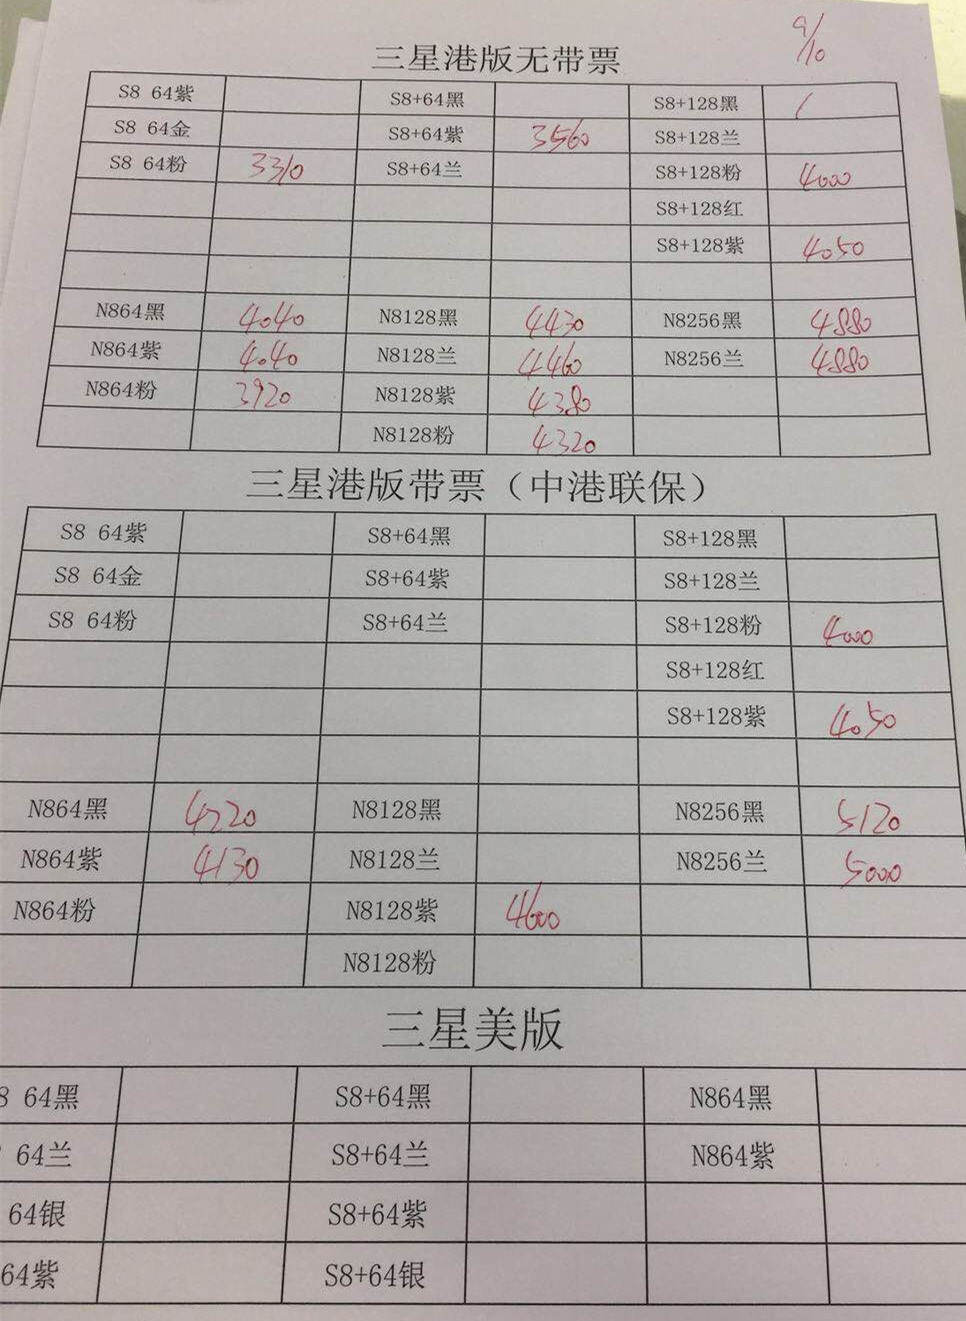 9/10
三星港版无带票
S8 64紫 S8+64黑 S8+128黑 /
S8 64金 S8+64紫 3560 S8+128兰
S8 64粉 3310 S8+64兰 S8+128粉 4000
S8+128红
S8+128紫 4050
N864黑 4040 N8128黑 4430 N8256黑 4880
N864紫 4040 N8128兰 4460 N8256兰 4880
N864粉 3920 N8128紫 4380
N8128粉 4320
三星港版带票（中港联保）
S8 64紫 S8+64黑 S8+128黑
S8 64金 S8+64紫 S8+128兰
S8 64粉 S8+64兰 S8+128粉 4000
S8+128红
S8+128紫 4050
N864黑 4220 N8128黑 N8256黑 5120
N864紫 4130 N8128兰 N8256兰 5000
N864粉 N8128紫 4600
N8128粉
三星美版
8 64黑 S8+64黑 N864黑
64兰 S8+64兰 N864紫
64银 S8+64紫
64紫 S8+64银